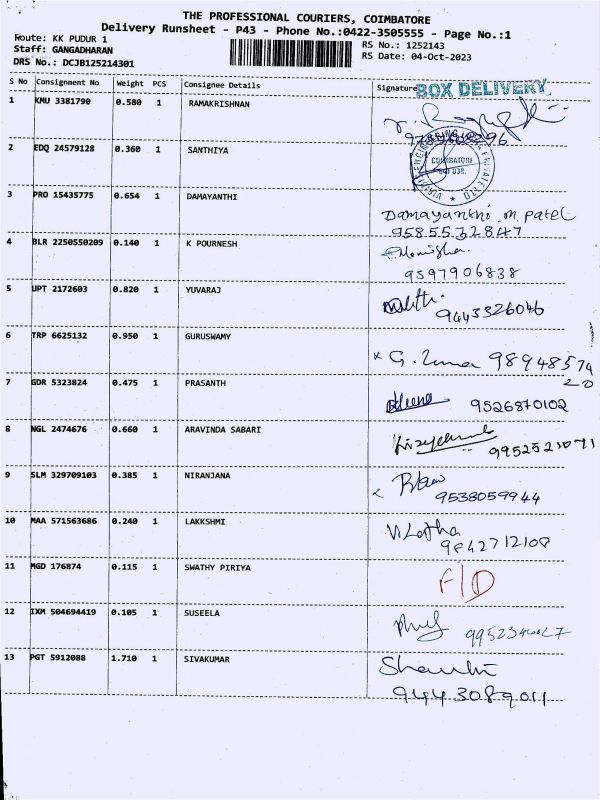 THE PROFESSIONAL COURIERS, COIMBATORE
Delivery Runsheet - P43 - Phone No.:0422-3505555 - Page No.:1
Route: KK PUDUR 1
Staff: GANGADHARAN
DRS No.: DCJB125214301
RS No.: 1252143
RS Date: 04-Oct-2023
S No Consignment No Weight PCS Consignee Details Signature BOX DELIVERY
1 KMU 3381790 0.580 1 RAMAKRISHNAN
2 EDQ 24579128 0.360 1 SANTHIYA
COIMBATORE
641 038.
3 PRO 15435775 0.654 1 DAMAYANTHI
Damayanthi. m. Patel
9585572847
4 BLR 2250550209 0.140 1 K POURNESH
9597906838
5 UPT 2172603 0.820 1 YUVARAJ
9443326046
6 TRP 6625132 0.950 1 GURUSWAMY
9894857420
7 GDR 5323824 0.475 1 PRASANTH
9526870102
8 NGL 2474676 0.660 1 ARAVINDA SABARI
9952523071
9 SLM 329709103 0.385 1 NIRANJANA
9538059944
10 MAA 571563686 0.240 1 LAKKSHMI
V. Latha
9842712108
11 MGD 176874 0.115 1 SWATHY PIRIYA F/D
12 IXM 504694419 0.105 1 SUSEELA
13 PGT 5912088 1.710 1 SIVAKUMAR
9443089011